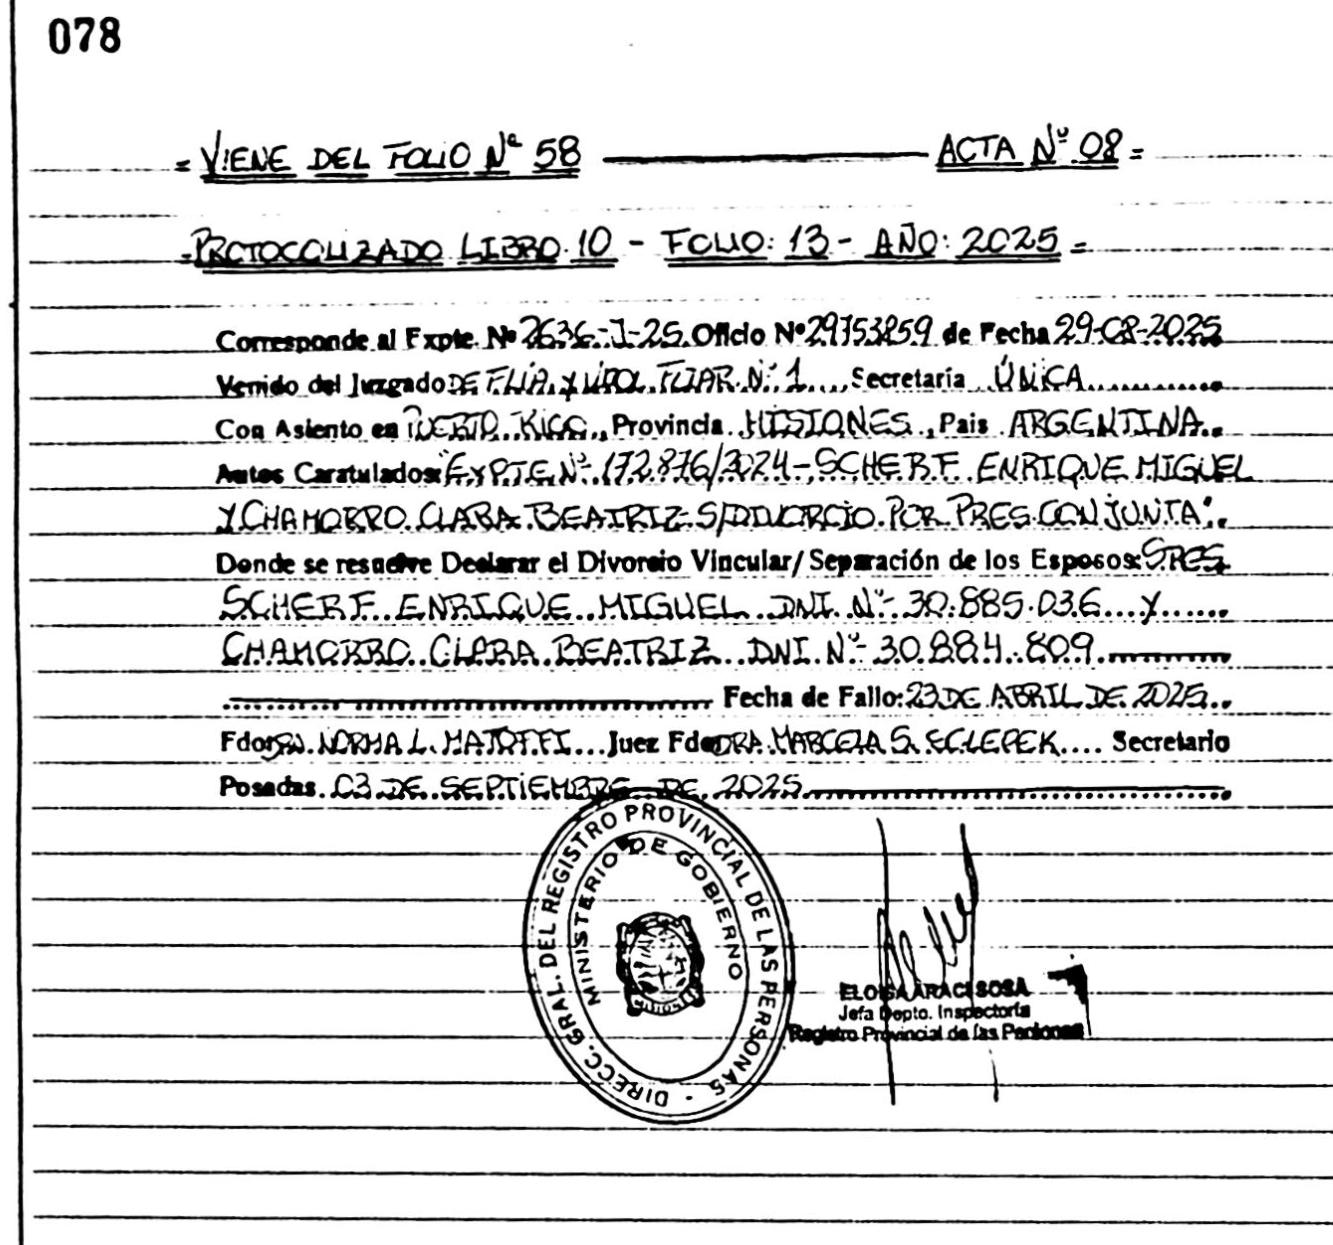 078
= VIENE DEL FOLIO Nº 58 ——— ACTA Nº 08 =
= PROTOCOLIZADO LIBRO: 10 - FOLIO: 13 - AÑO: 2025 =
Corresponde al Expte. Nº 2636-J-25 Oficio Nº 29753859 de Fecha 29-08-2025
Venido del Juzgado DE FLIA. Y VIOL. FLIAR. Nº 1 .... Secretaría ÚNICA............
Con Asiento en PUERTO RICO., Provincia MISIONES., Pais ARGENTINA..
Autos Caratulados: "EXPTE Nº 172.876/2024 - SCHERF ENRIQUE MIGUEL
Y CHAMORRO CLARA BEATRIZ S/DIVORCIO POR PRES. CONJUNTA".
Donde se resuelve Declarar el Divorcio Vincular/ Separación de los Esposos: SRES
SCHERF ENRIQUE MIGUEL DNI Nº 30.885.036 .... Y ......
CHAMORRO CLARA BEATRIZ DNI Nº 30.884.809
Fecha de Fallo: 23 DE ABRIL DE 2025..
Fdo: NORMA L. .... Juez Fdo: DRA. MARCELA S. .... Secretario
Posadas 03 DE SEPTIEMBRE DE 2025
DIRECC. GRAL. DEL REGISTRO PROVINCIAL DE LAS PERSONAS -
MINISTERIO DE GOBIERNO
ELOISA ARACI SOSA
Jefa Depto. Inspectoría
Registro Provincial de las Personas